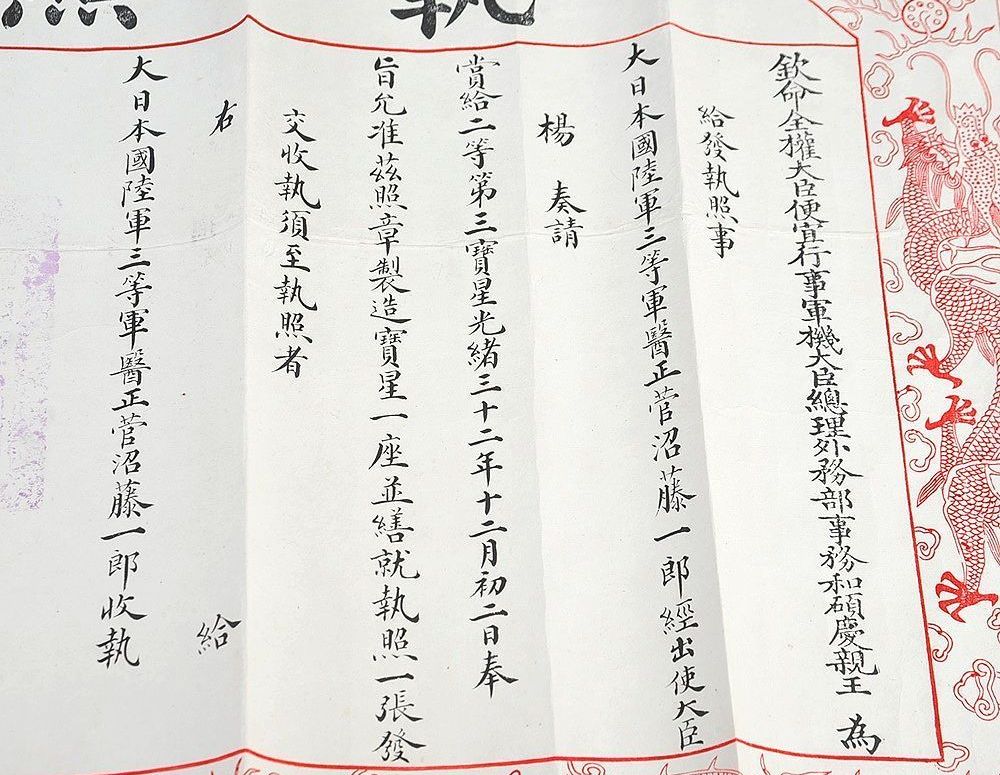 執照
欽命全權大臣便宜行事軍機大臣總理外務部事務和碩慶親王 為
給發執照事
大日本國陸軍三等軍醫正菅沼藤一郎經出使大臣
楊 奏請
賞給二等第三寶星光緒三十二年十二月初二日奉
旨允准茲照章製造寶星一座並繕就執照一張發
交收執須至執照者
右 給
大日本國陸軍三等軍醫正菅沼藤一郎收執